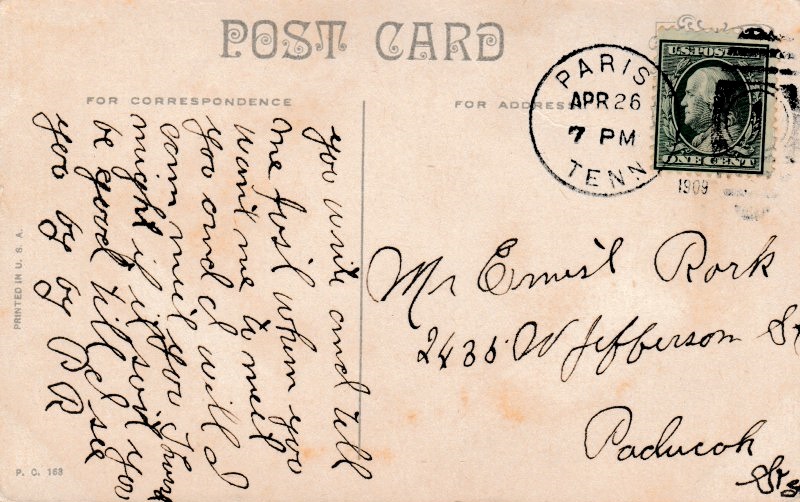 POST CARD
FOR CORRESPONDENCE
FOR ADDRESS
PARIS
APR 26
7 PM
TENN
1909
U.S. POST
ONE CENT
you write and tell
me Just when you
want me to meet
you and I will I
can meet you Thurs
might if it soit you
be good till I see
you by by P R
Mr Ernest Rork
2435 W Jefferson St
Paducah
PRINTED IN U. S. A.
P. C. 163